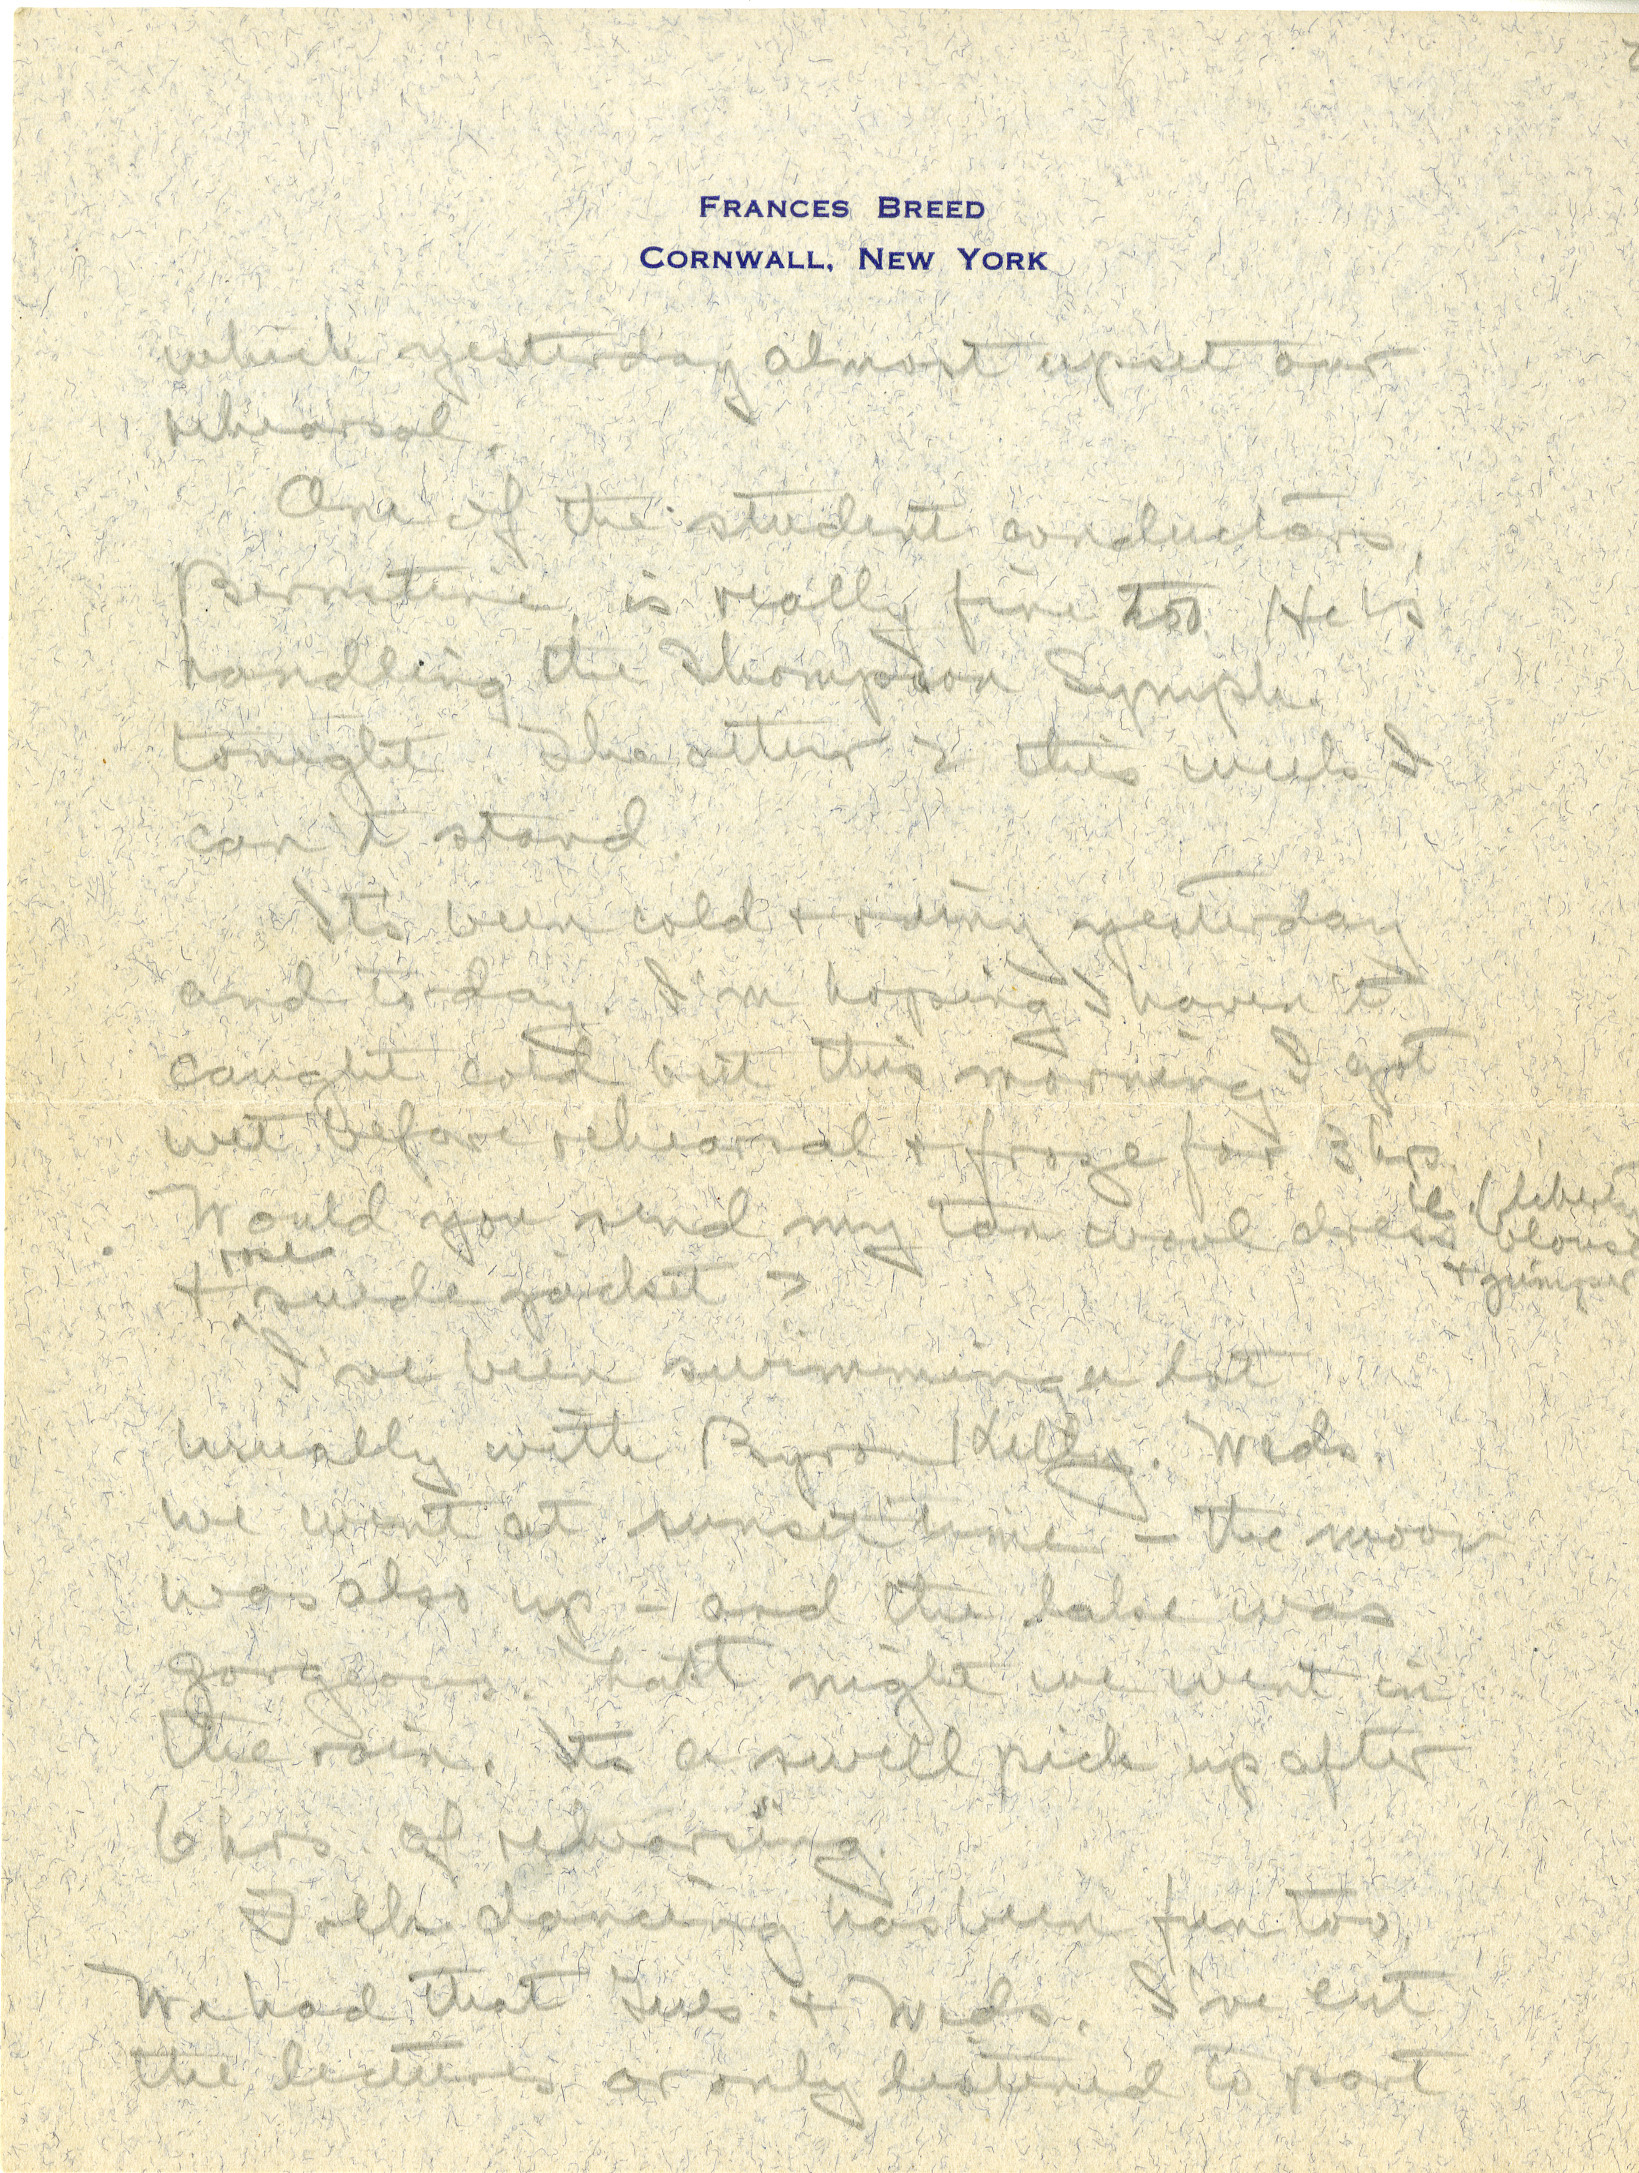 FRANCES BREED
CORNWALL, NEW YORK
which yesterday almost upset our
rehearsal.
One of the student conductors,
Bernsteine is really fine too. He's
handling the Thompson Symph.
tonight. The other 2 this week I
can't stand.
It's been cold + rainy yesterday
and today. I'm hoping I haven't
caught cold but this morning I got
wet before rehearsal + froze for 3 hrs.
Would you send my tan wool dress (liberty
blouse
+ jumper
+ rose suede jacket?
I've been swimming a lot
usually with Byron Kelly. Weds.
we went at sunset time – the moon
was also up – and the lake was
gorgeous. Last night we went in
the rain. Its a swell pick up after
6 hrs. of rehearsing.
Folk dancing has been fun too.
We had that Tues. + Weds. I've cut
the lectures or only listened to part